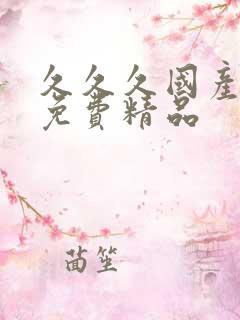 久久久國產
免費精品